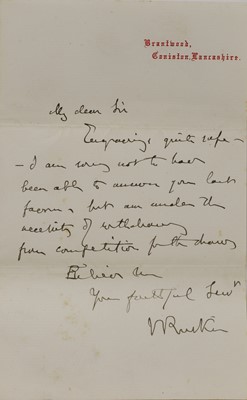 Brantwood,
Coniston, Lancashire.
My dear Sir
Engravings quite safe –
– I am sorry not to have
been able to answer your last
favour, but am under the
necessity of withdrawing
from competition for the
Believe me
Your faithful Servt
J Ruskin